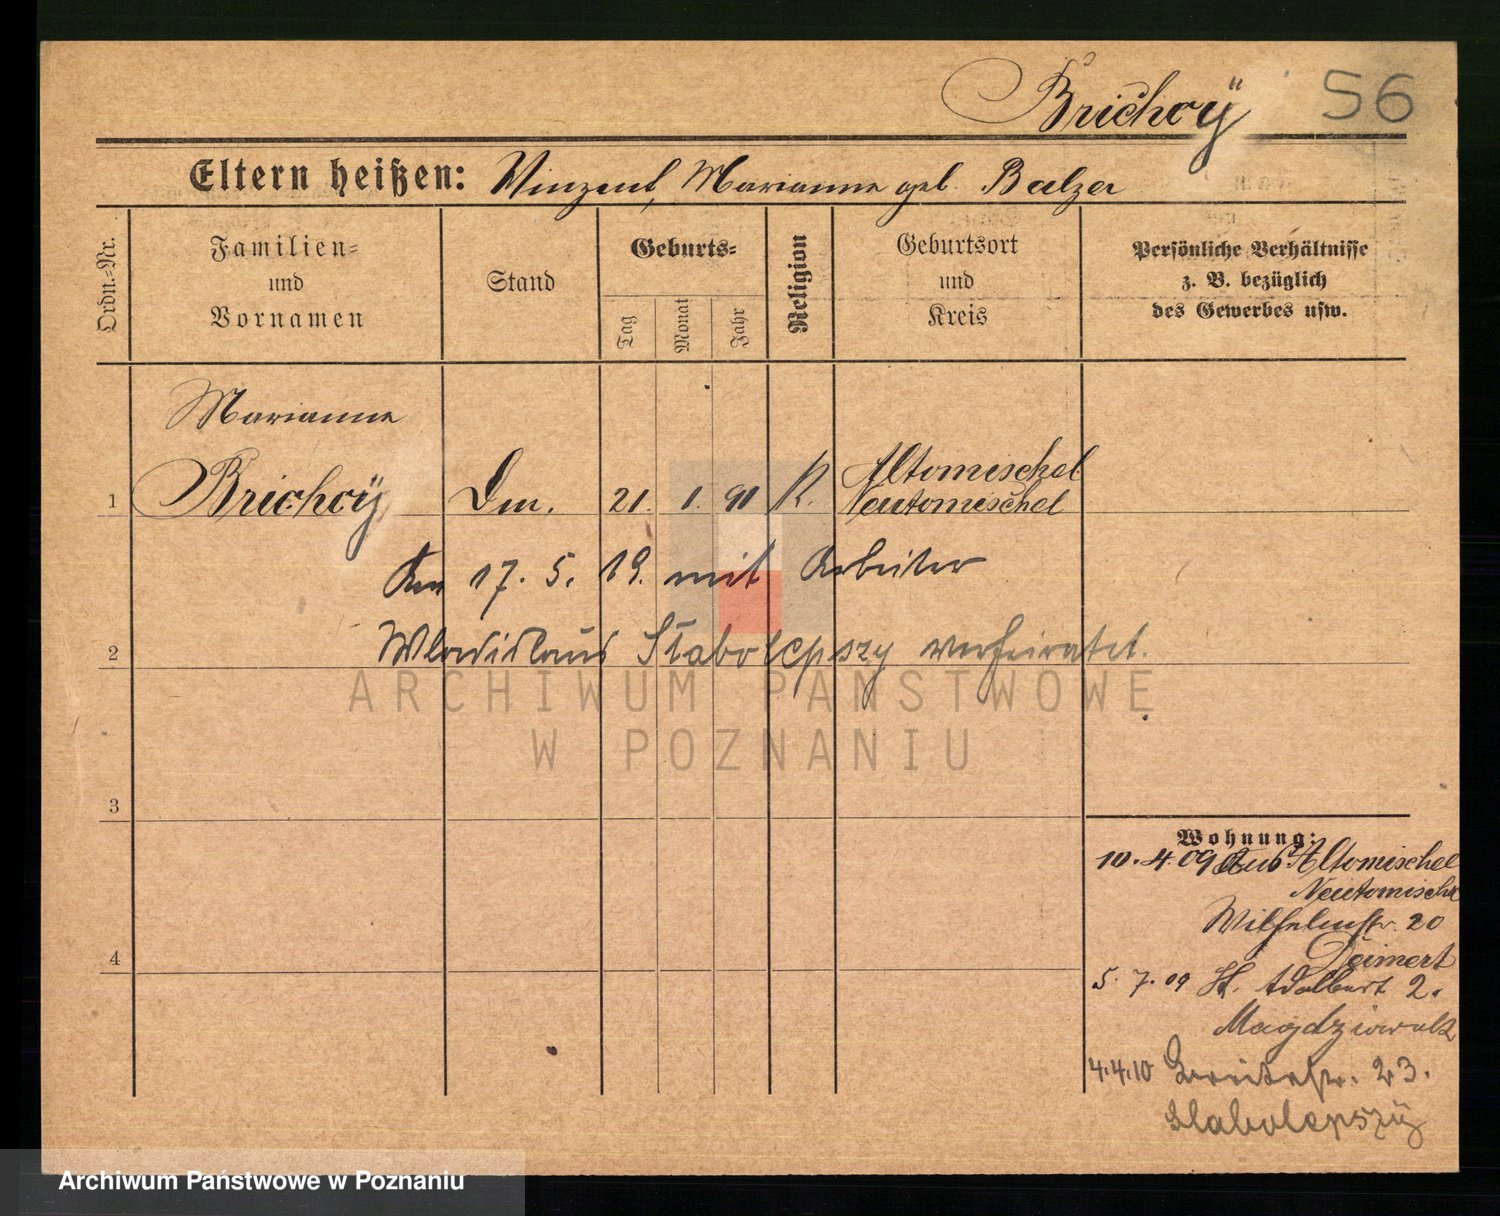 Brichcÿ 56
Eltern heißen: Vinzent, Marianne geb. Balzer
Ordn.=Nr.
Familien=
und
Vornamen
Stand
Geburts=
Tag
Monat
Jahr
Religion
Geburtsort
und
Kreis
Persönliche Verhältnisse
z. B. bezüglich
des Gewerbes usw.
Marianne
1 Brichcÿ Dm. 21. 1. 91 K. Altomischel
Neutomischel
Am 17. 5. 19. mit Arbeiter
2 Wladislaus Słabolepszy verheiratet.
3
4
Wohnung:
10. 4. 09 Aus Altomischel
Neutomischel
Wilhelmstr. 20
5. 7. 09 St. Adalbert 2.
4.4.10 Breitestr. 23.
Slabolepszÿ
ARCHIWUM PAŃSTWOWE
W POZNANIU
Archiwum Państwowe w Poznaniu